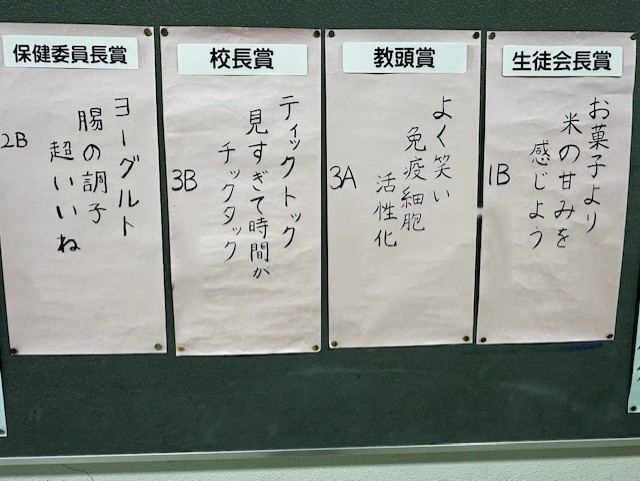 生徒会長賞
お菓子より
米の甘みを
感じよう
1B
教頭賞
よく笑い
免疫細胞
活性化
3A
校長賞
ティックトック
見すぎて時間が
チックタック
3B
保健委員長賞
ヨーグルト
腸の調子
超いいね
2B